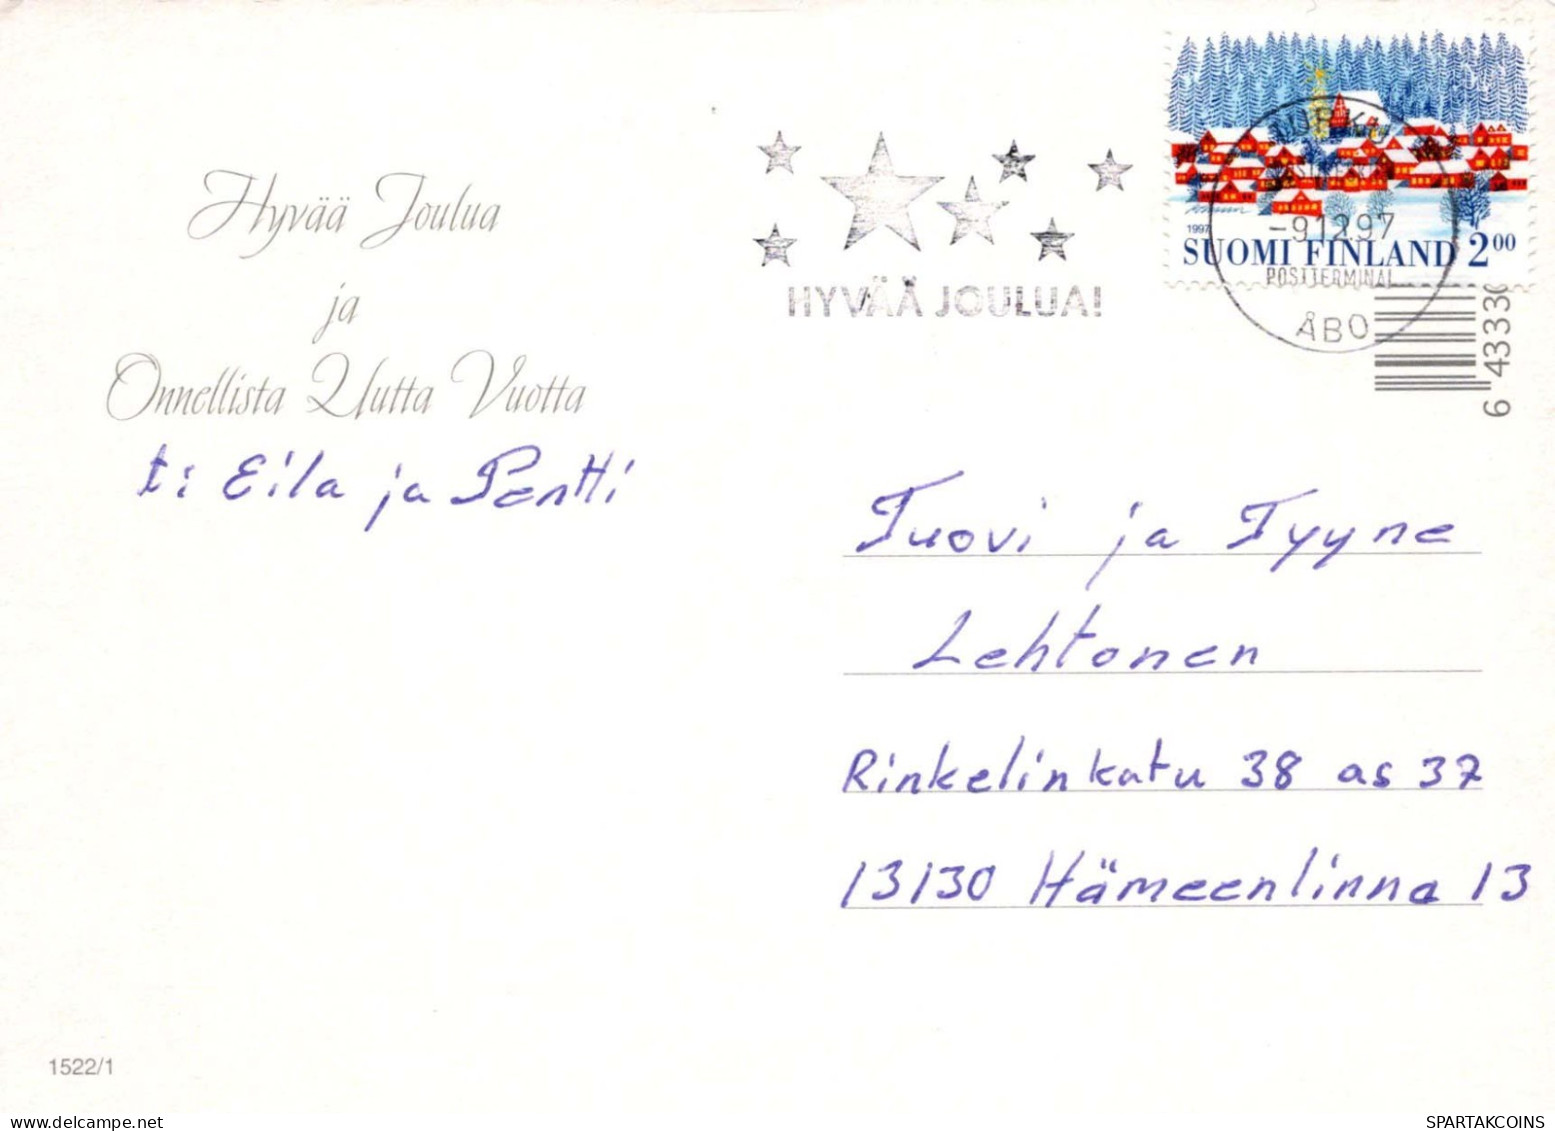 Hyvää Joulua
ja
Onnellista Uutta Vuotta
t: Eila ja Pentti
HYVÄÄ JOULUA!
TURKU
-91297
POSTTERMINAL
ÅBO
1997
SUOMI FINLAND 2⁰⁰
6 43330
Tuovi ja Tyyne
Lehtonen
Rinkelinkatu 38 as 37
13130 Hämeenlinna 13
1522/1
SPARTAKCOINS